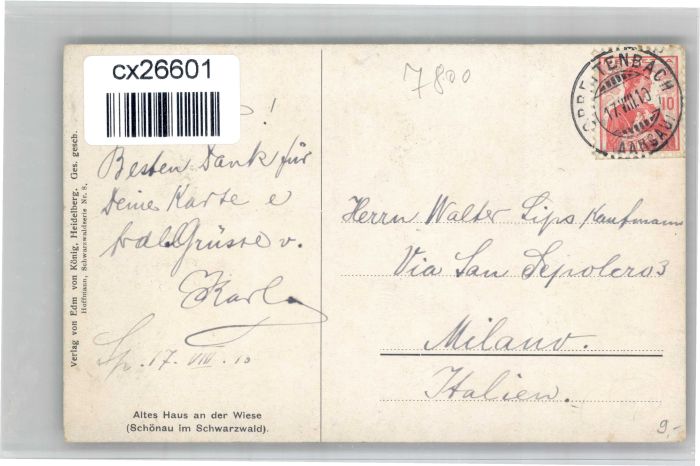 cx26601
7800
!
Besten Dank für
Deine Karte e
Grüsse v.
Karl
Sp. 17. VIII. 10
Altes Haus an der Wiese
(Schönau im Schwarzwald).
Verlag von Edm von König, Heidelberg. Ges. gesch.
Hoffmann, Schwarzwaldserie Nr. 8.
SPREITENBACH
17.VIII.10
(AARGAU)
10
Herrn Walter Lips, Kaufmann
Via San Sepolcro 3
Milano.
Italien.
9.-